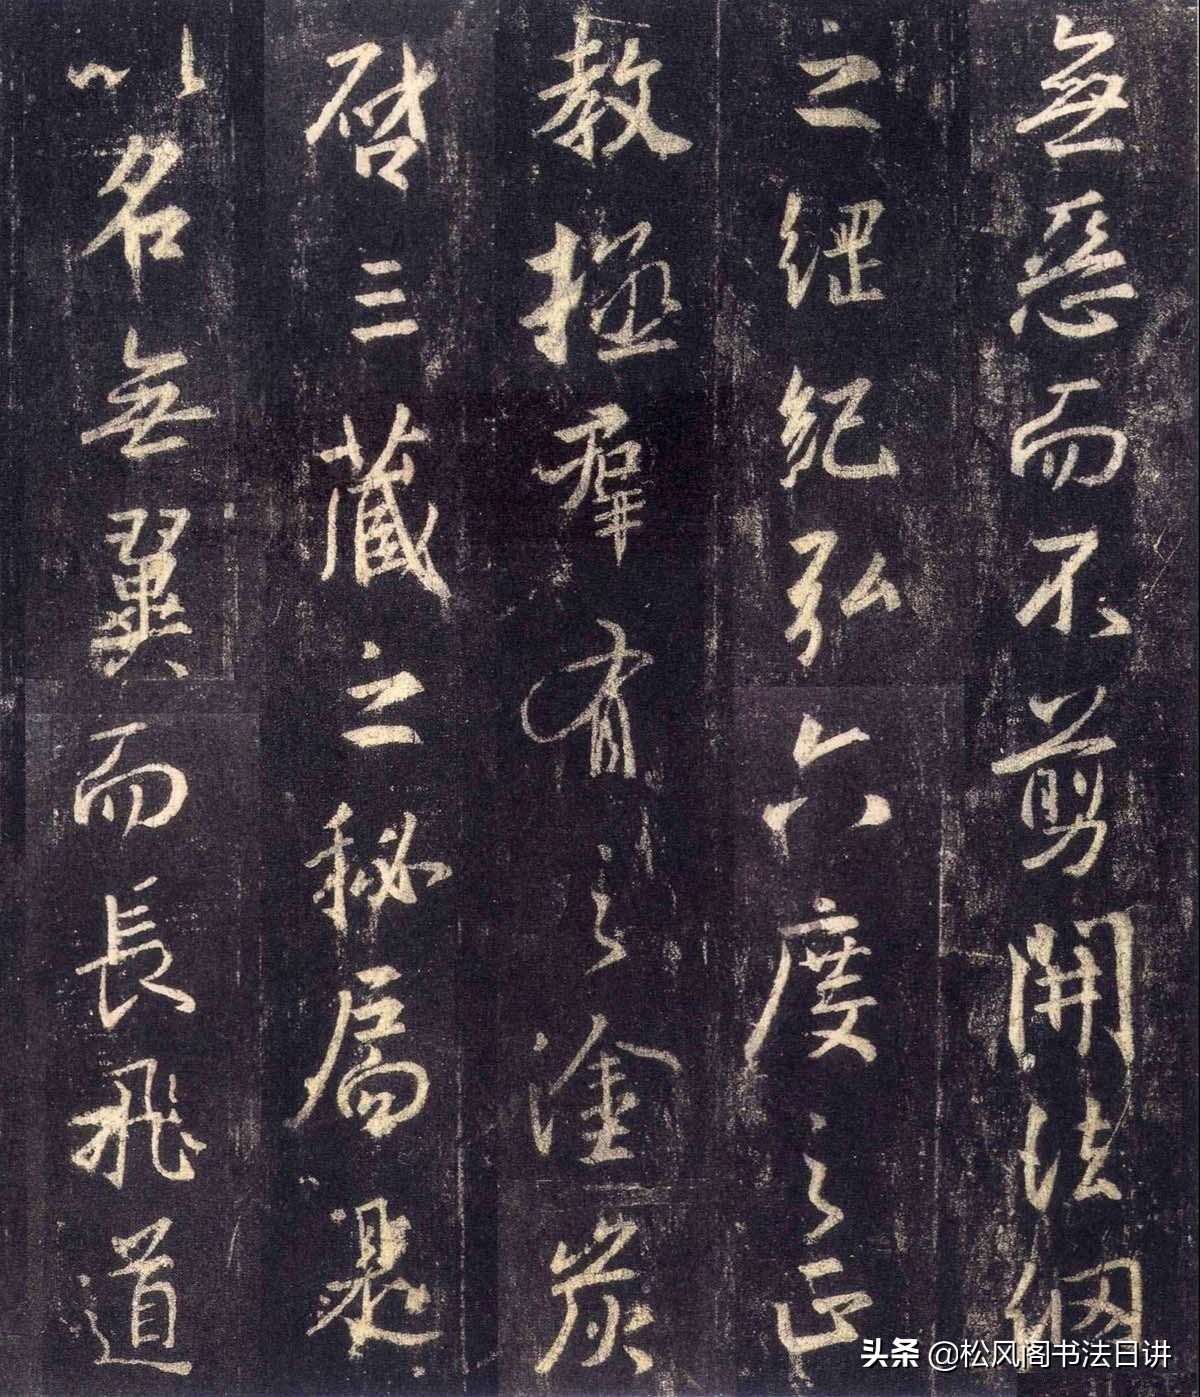 無惡而不剪開法網
之綱紀弘六度之正
教拯羣有之塗炭
啓三藏之秘扃是
以名無翼而長飛道
头条 @松风阁书法日讲